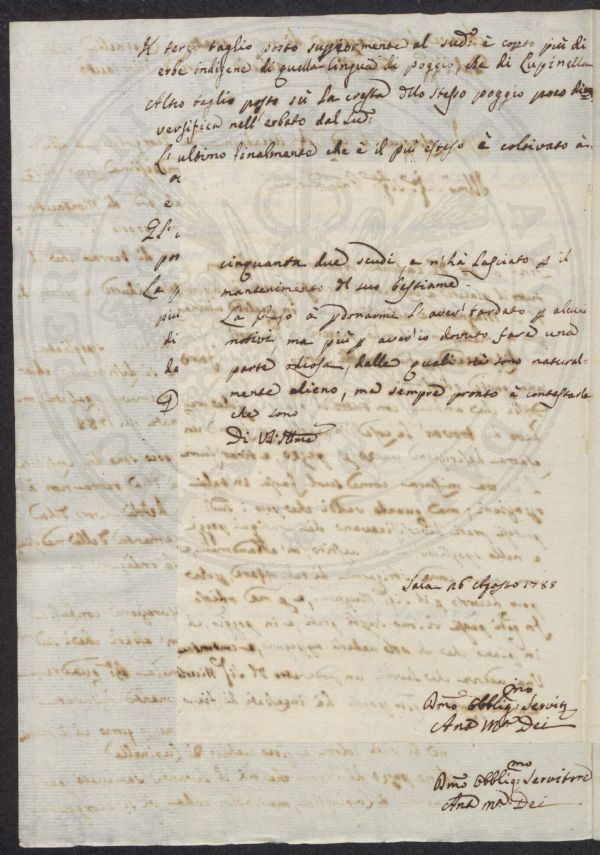 Il terz: taglio posto superiormente al sud: è copto più di
erbe indigene di quella lingua di poggio, che di Lupinella
Altro taglio posto sù la cresta dello stesso poggio poco di=
versifica nell'erbato dal sud:
L'ultimo finalmente che è il più esteso è coltivato à
e
po
La
più
di
da
cinquanta due scudi, e n'hà lasciato p il
mantenimento del suo bestiame.
La Prego à pdonarme l'aver tardato p alcuni
motivi, ma più p aver io dovuto fare una
parte odiosa, dalle quali ne sono natural-
mente alieno, ma sempre pronto à contestarle
che sono
Di
Sala 26 Agosto 1788
Dmo Obbligmo: Servit
Ant Ma Dei
Dmo Obbligmo: Servitore
Ant Ma: Dei